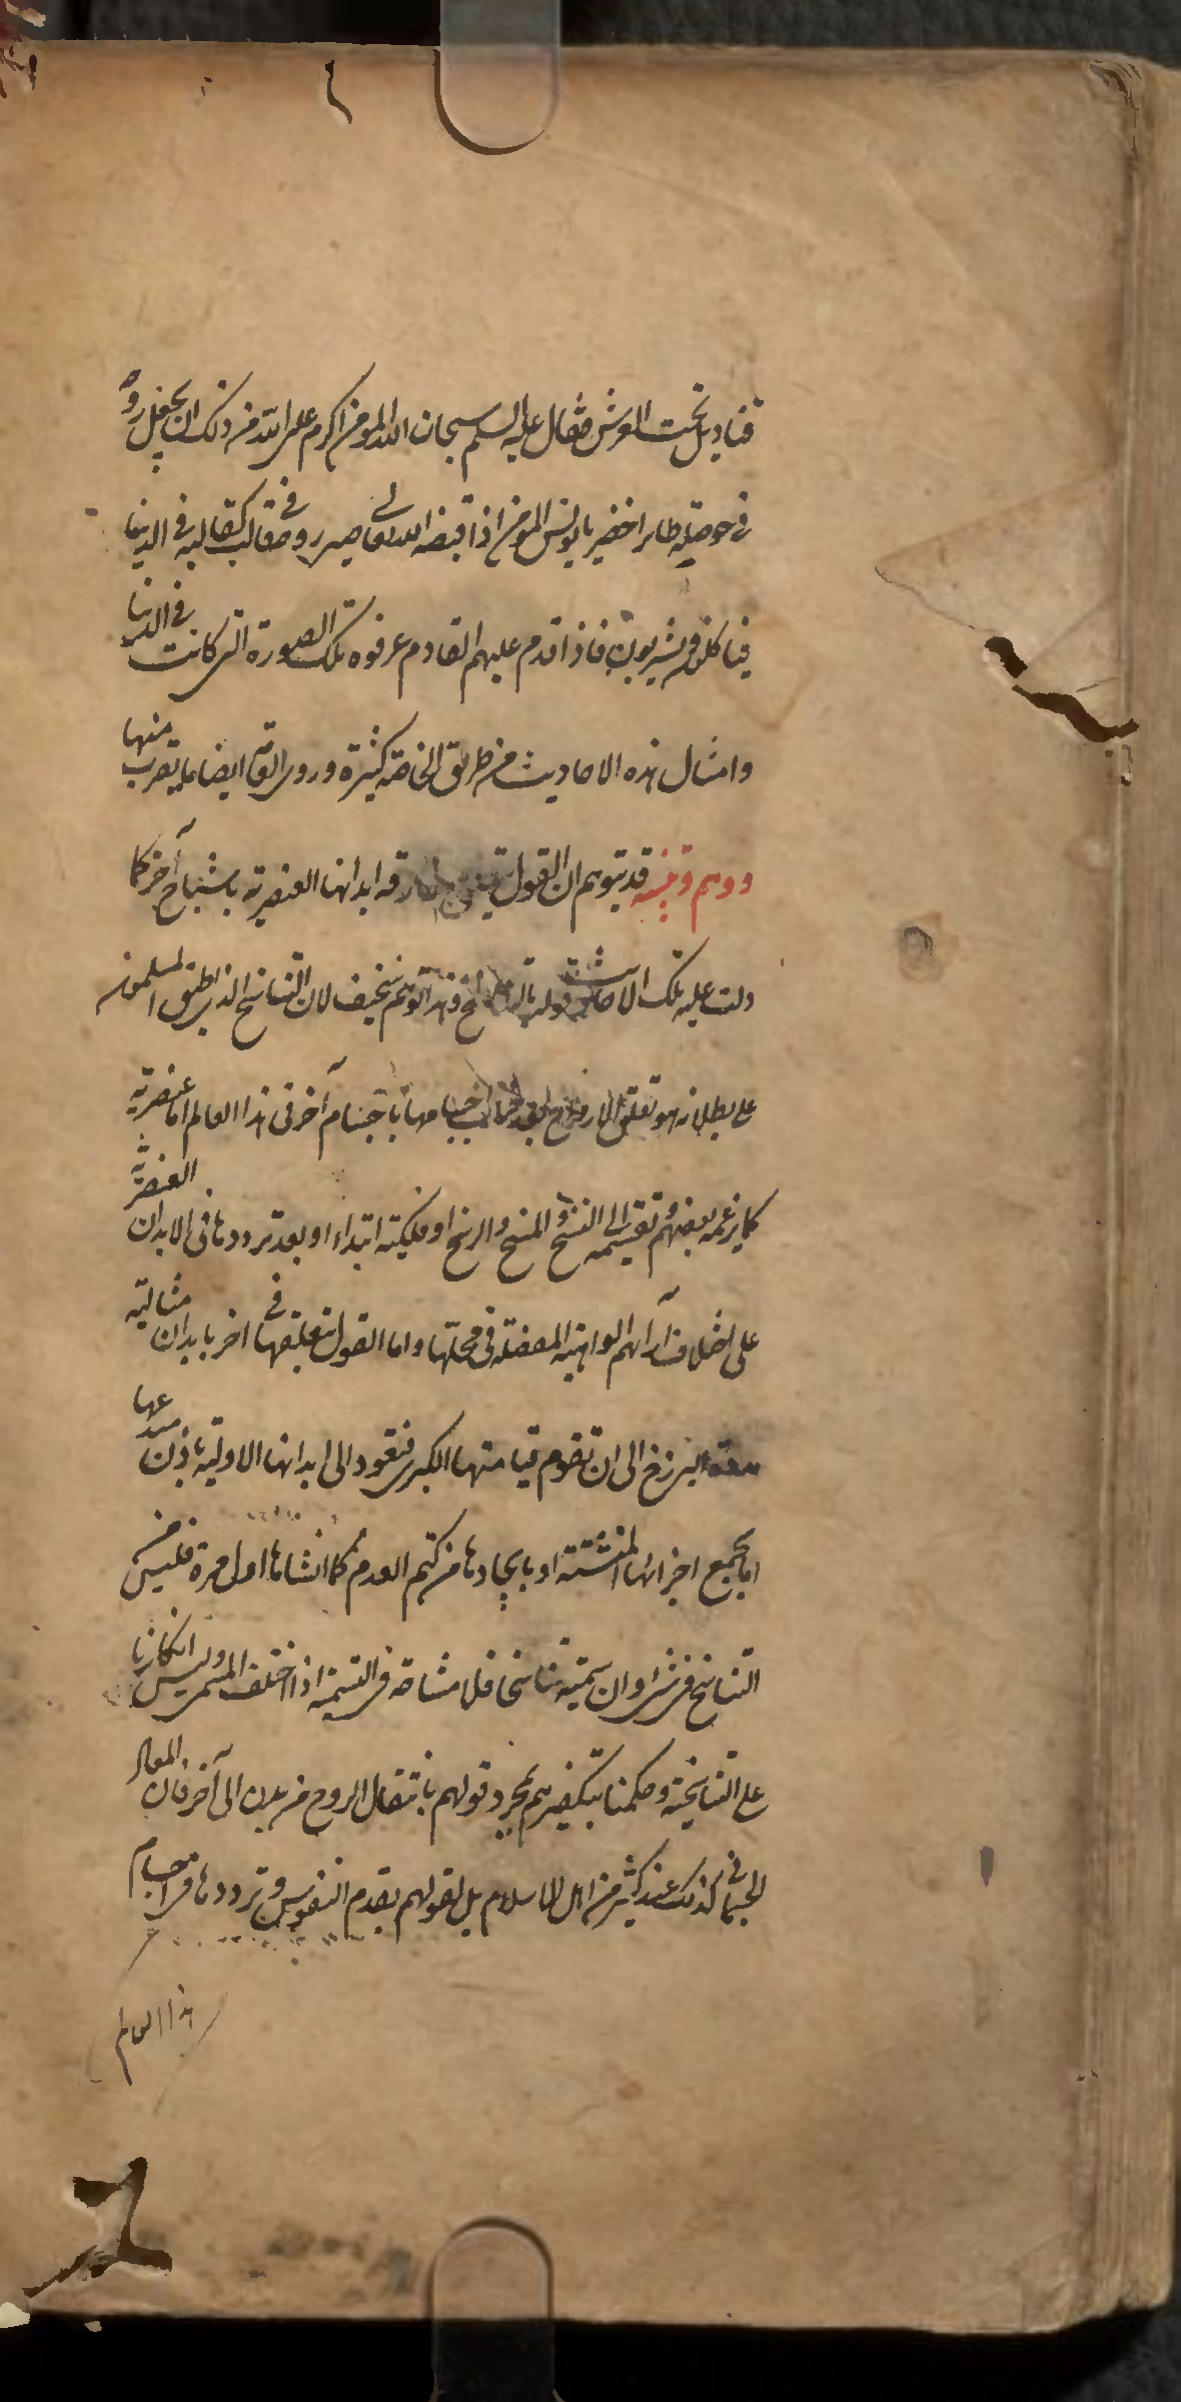 قناديل تحت العرش فقال عليه السلم سبحان الله المومن اكرم على الله من ذلك ان يجعل روحه
في حوصلة طاير اخضر يا يونس المومن اذا قبضه الله تعالى صير روحه في قالب كقالبه في الدنيا
فياكلون ويشربون فاذا قدم عليهم القادم عرفوه بتلك الصورة التي كانت في الدنيا
وامثال هذه الاحاديث من طريق الخاصة كثيرة وروى العامة ايضا ما يقرب منها
ووهم وتنبيه قد يتوهم ان القول بتعلق بعد مفارقة ابدانها العنصرية باشباح آخر كما
دلت عليه تلك الاحاديث قول بالتناسخ وهذا توهم سخيف لان التناسخ الذي اطبق المسلمون
على بطلانه هو تعلق الارواح بعد خراب اجسامها باجسام آخر في هذا العالم اما عنصرية
كما يزعمه بعضهم ويقسمه الى النسخ والمسخ والرسخ او فلكية ابتداء او بعد ترددها في الابدان العنصرية
على اختلاف آرائهم الواهية المفصلة في محلها واما القول بتعلقها في اخر بابدان مثالية
مدة البرزخ الى ان تقوم قيامتها الكبرى فتعود الى ابدانها الاولية باذن مبدعها
اما بجمع اجزائها المتشتتة او بايجادها من كتم العدم كما انشاها اول مرة فليس من
التناسخ في شئ وان سميته تناسخا فلا مشاحة في التسمية اذا اختلف المسمى وليس انكارنا
على التناسخية وحكمنا بتكفيرهم بمجرد قولهم بانتقال الروح من بدن الى آخر فان المعاد
الجسماني كذلك عند كثير من اهل الاسلام بل لقولهم بقدم النفوس وترددها في اجسام
هذا العالم